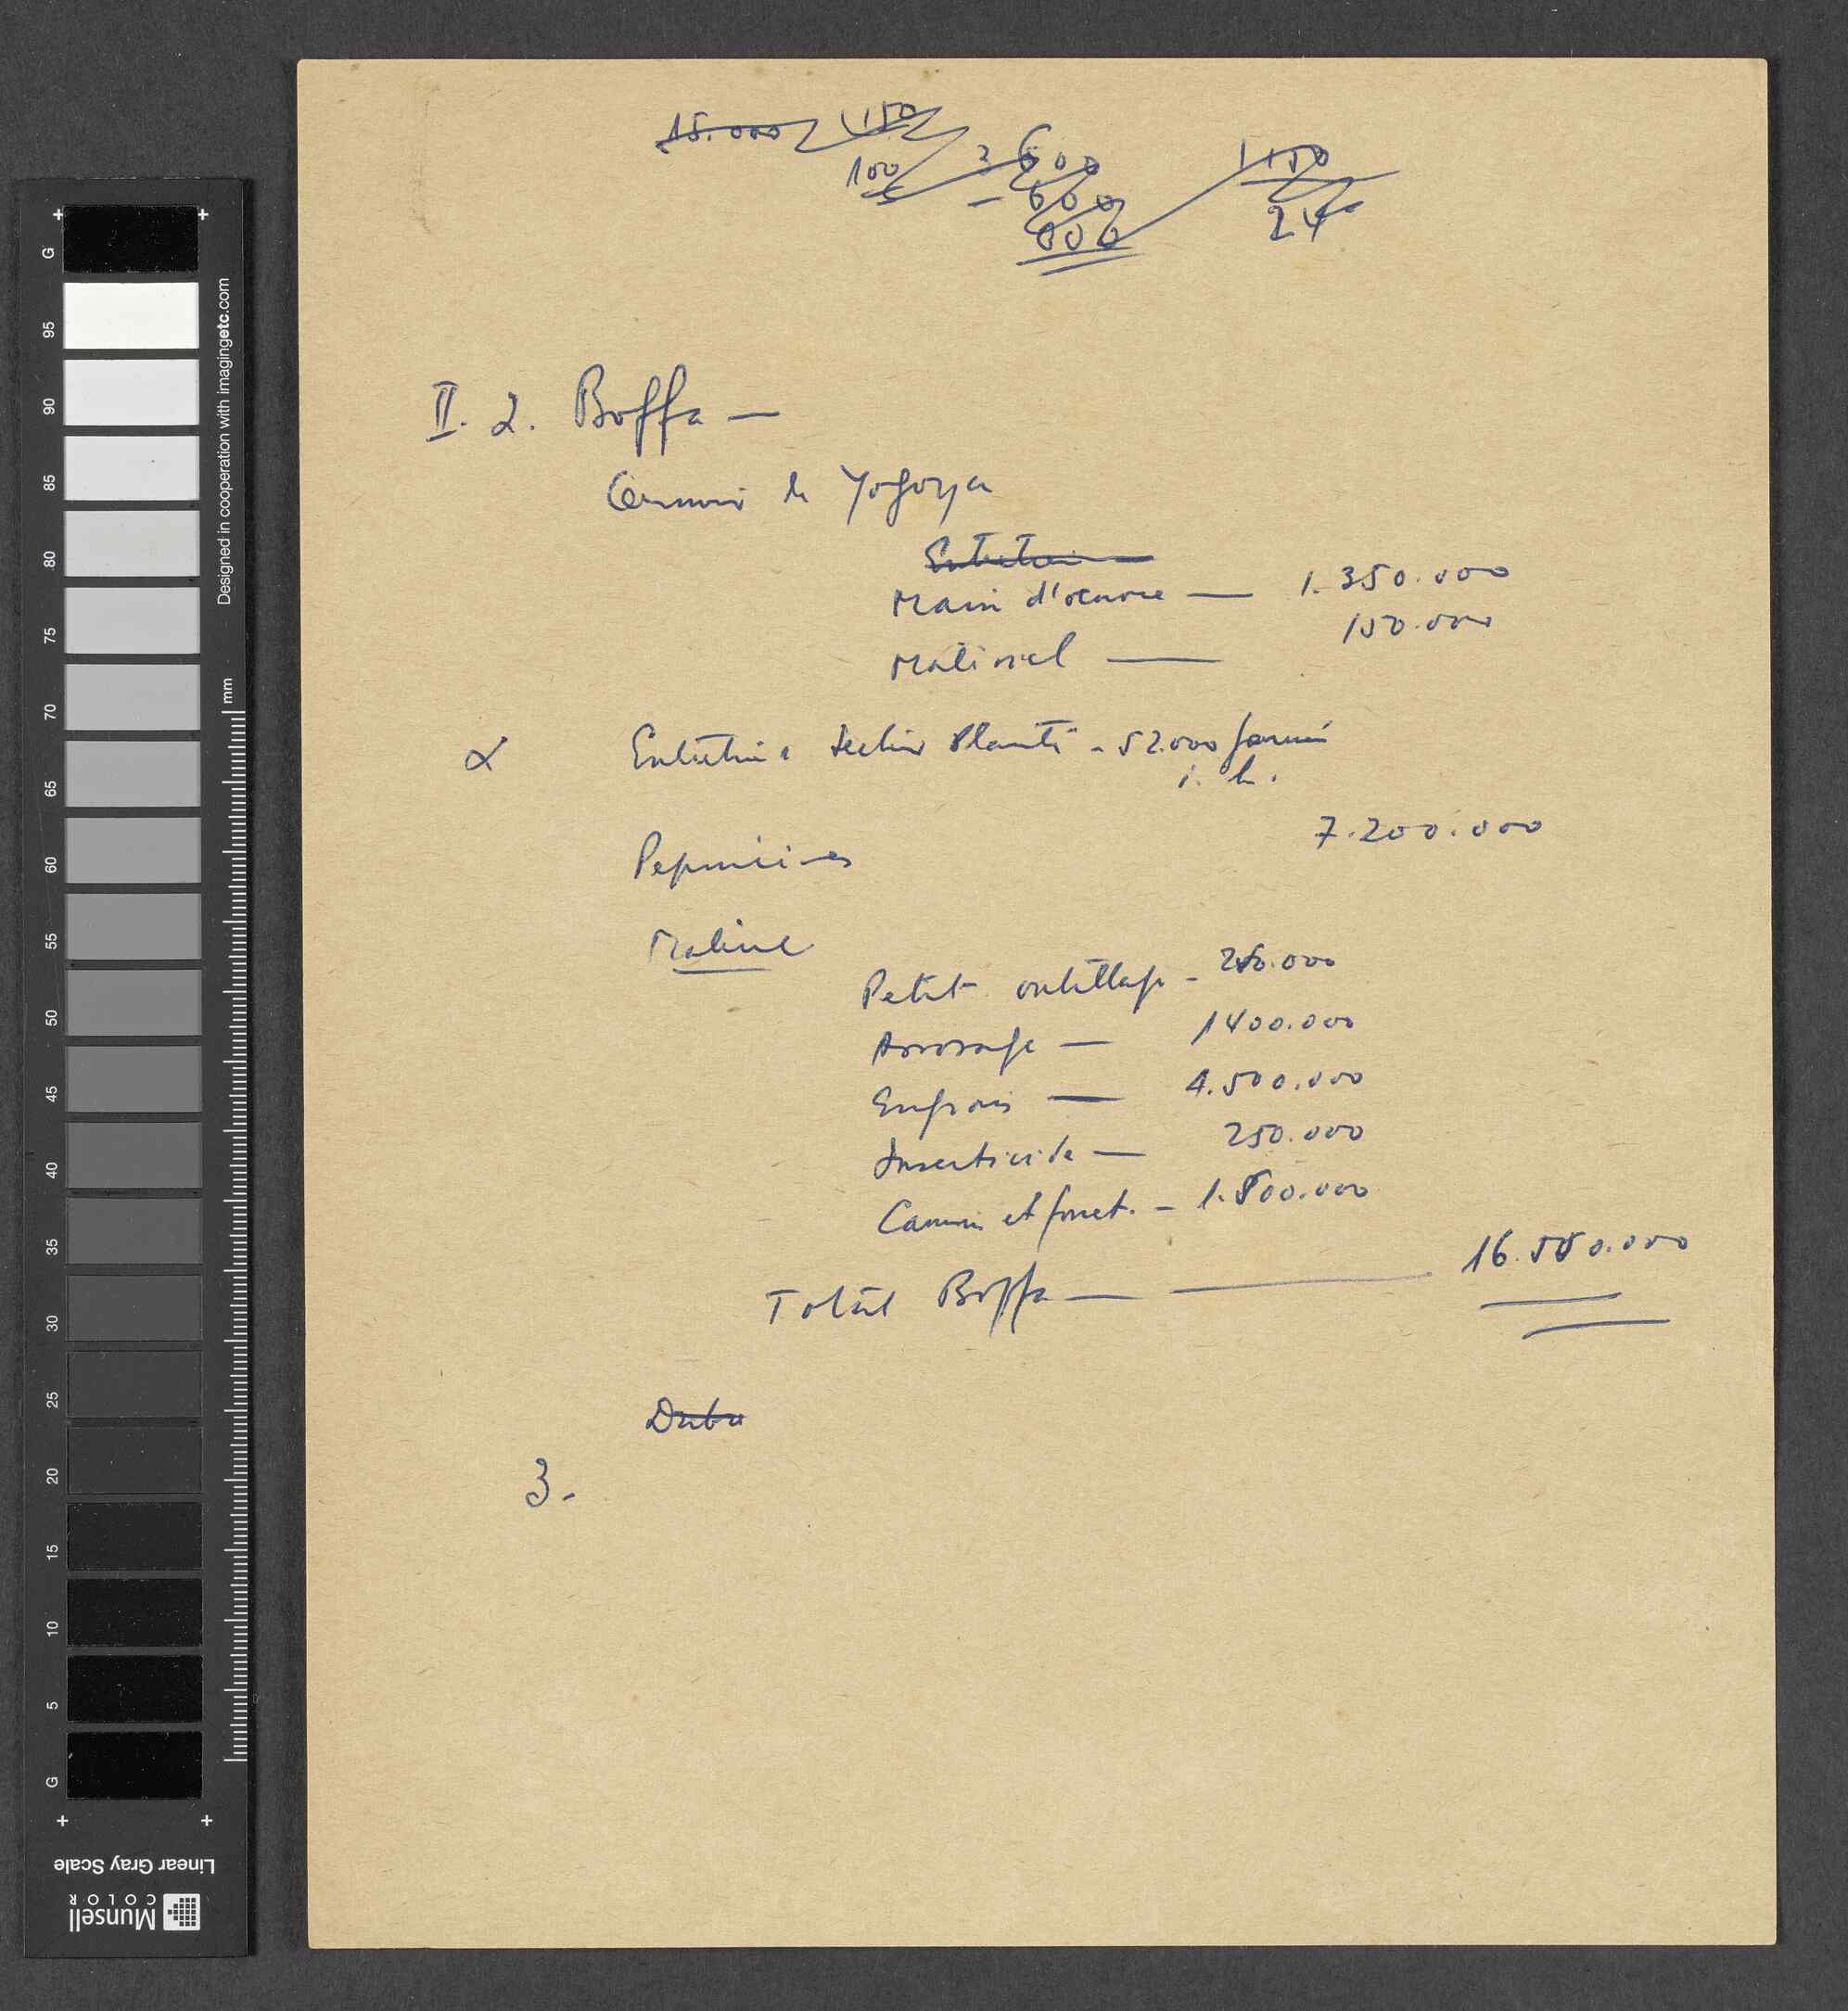 15.000 150
100
3600
- 600
000
1150
24
II. 2. Boffa —
de Yogoya
Entretien —
Main d'oeuvre — 1.350.000
Matériel — 150.000
α Entretien Section Planté - 52.000
7.200.000
Pepinières
Matériel
Petit outillage - 250.000
Arrosage — 1400.000
Engrais — 4.500.000
Insecticide — 250.000
Camion et fonct. - 1.500.000
Total Boffa — 16.550.000
3.
G
95
90
85
80
75
70
65
60
55
50
45
40
35
30
25
20
15
10
5
G
Designed in cooperation with imagingetc.com
mm
Linear Gray Scale
Munsell
COLOR